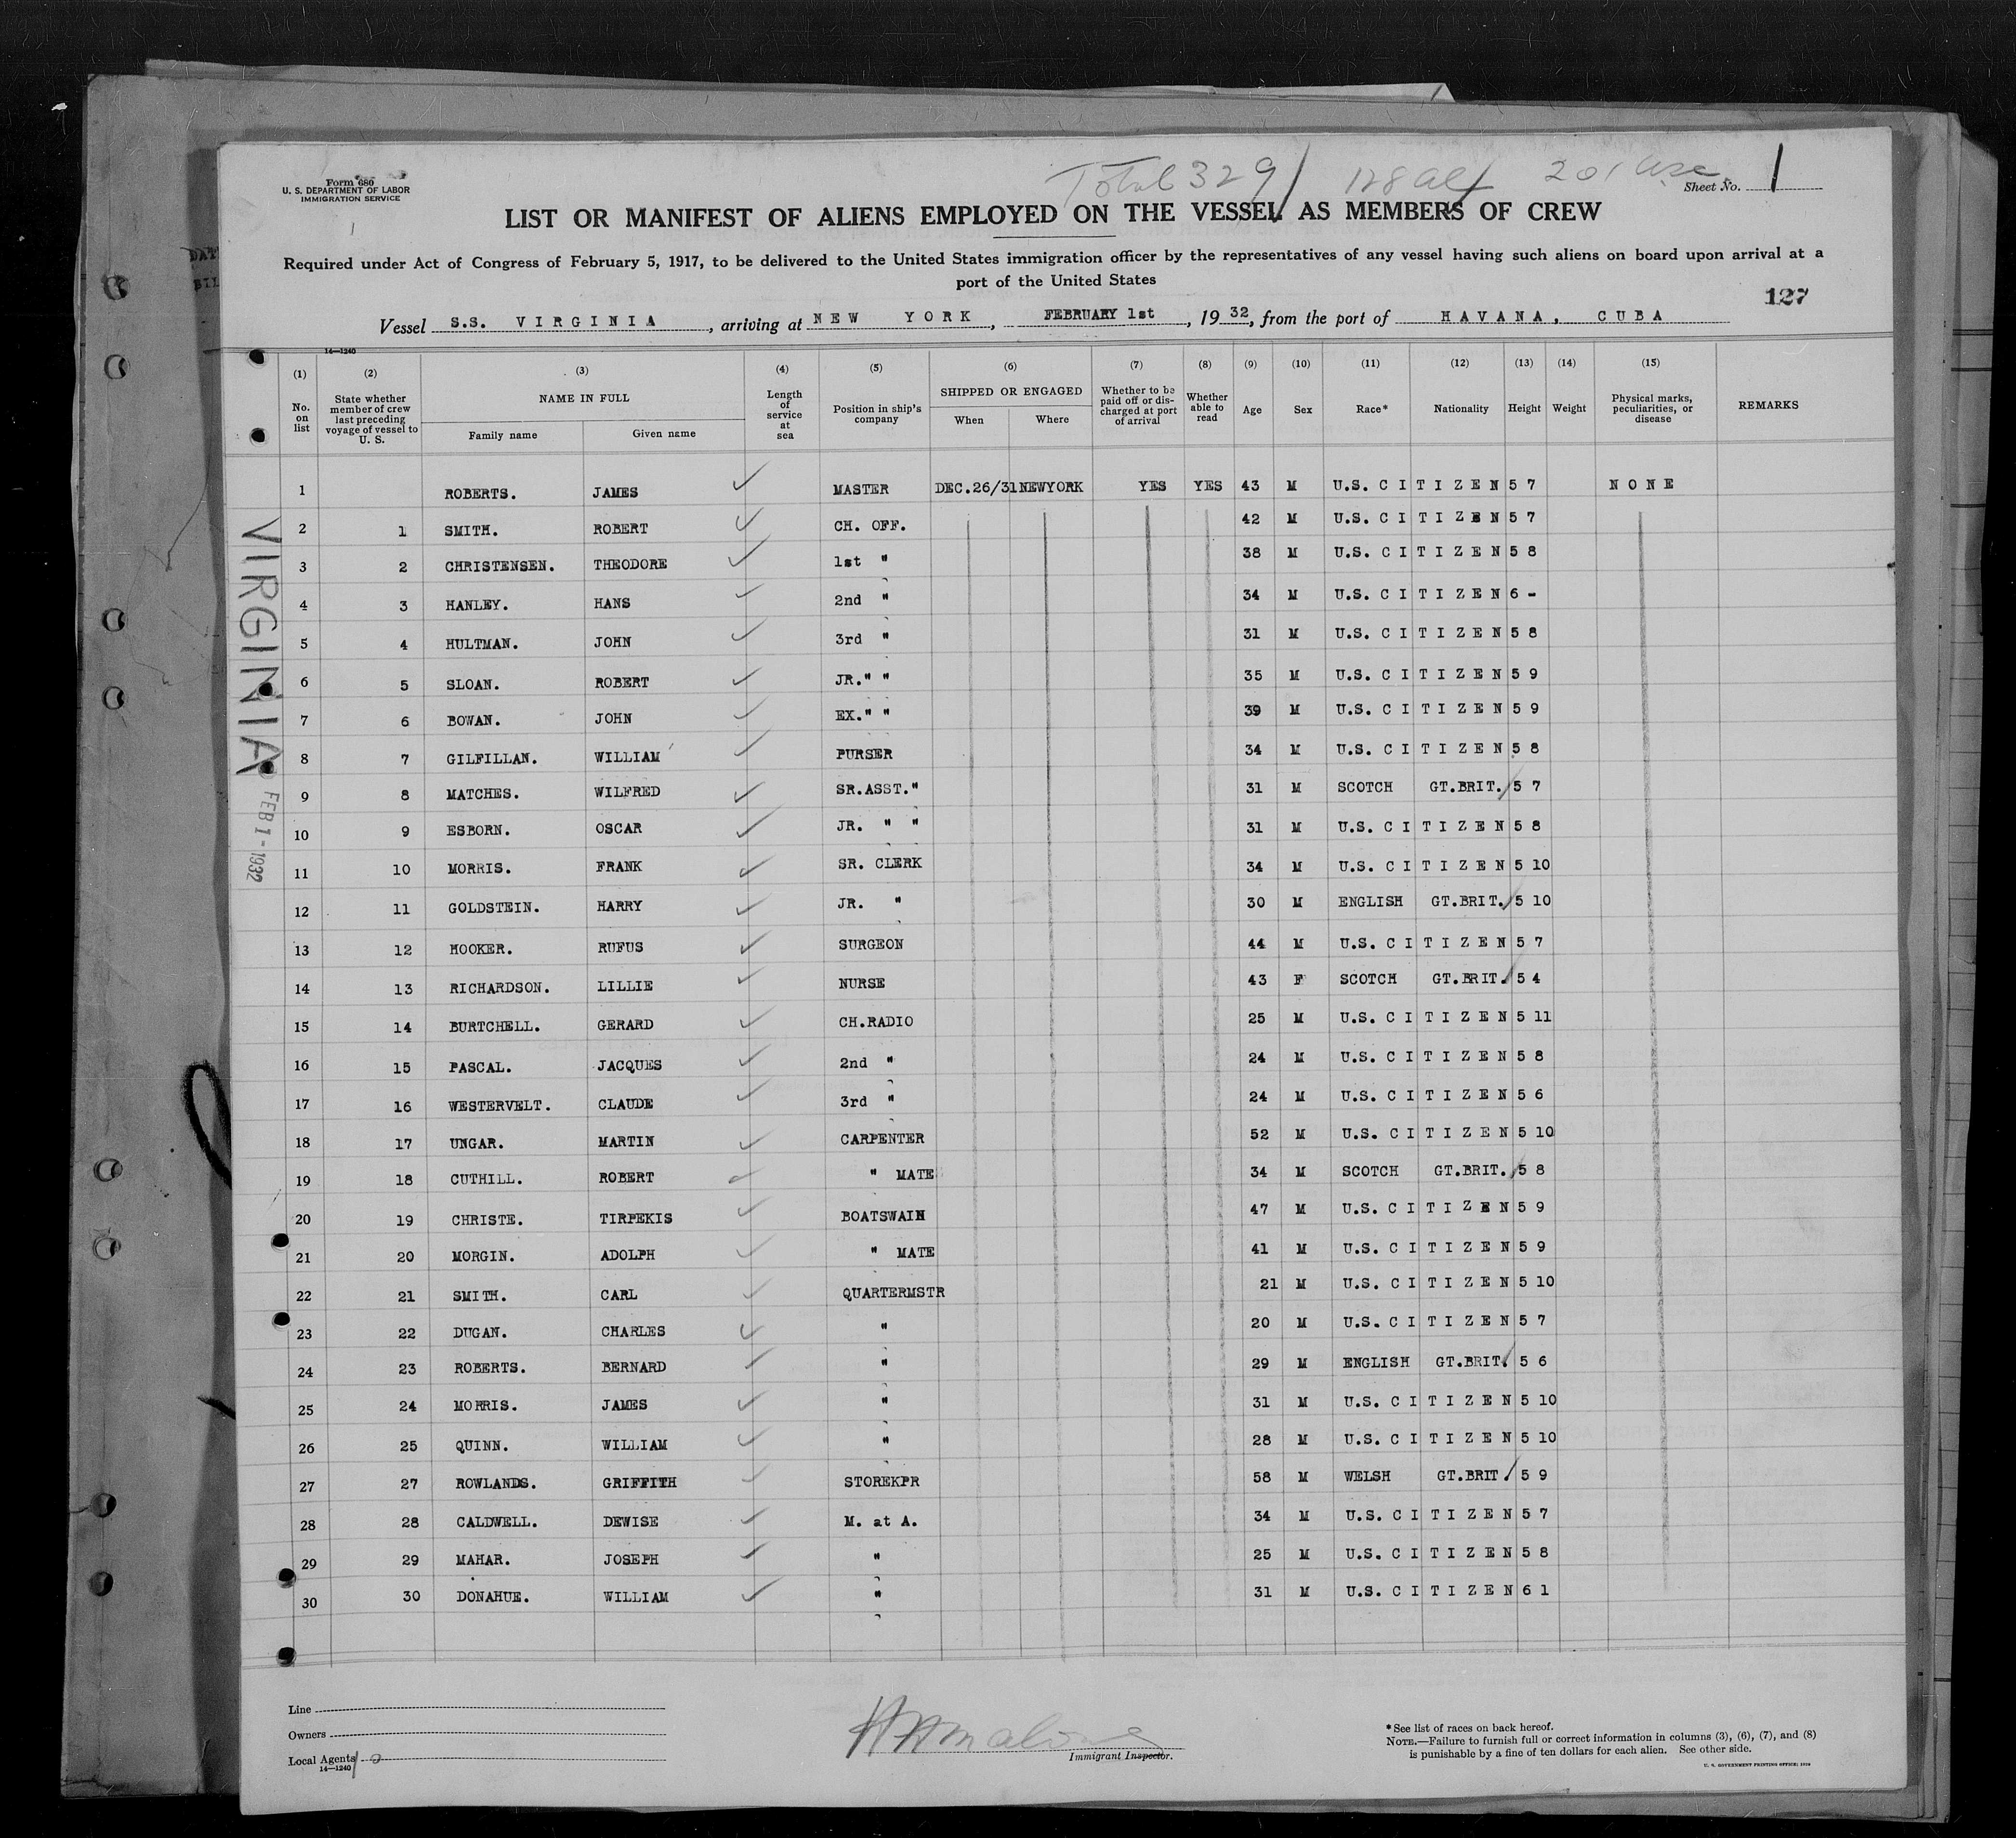 Total 329 128 al 201 usc
Form 680
U. S. DEPARTMENT OF LABOR
IMMIGRATION SERVICE
Sheet No. 1
LIST OR MANIFEST OF ALIENS EMPLOYED ON THE VESSEL AS MEMBERS OF CREW
Required under Act of Congress of February 5, 1917, to be delivered to the United States immigration officer by the representatives of any vessel having such aliens on board upon arrival at a
port of the United States
127
Vessel S.S. VIRGINIA, arriving at NEW YORK, FEBRUARY 1st, 1932, from the port of HAVANA, CUBA
14—1240
(1) (2) (3) (4) (5) (6) (7) (8) (9) (10) (11) (12) (13) (14) (15)
No. on list State whether member of crew last preceding voyage of vessel to U. S. NAME IN FULL Family name Given name Length of service at sea Position in ship's company SHIPPED OR ENGAGED When Where Whether to be paid off or discharged at port of arrival Whether able to read Age Sex Race* Nationality Height Weight Physical marks, peculiarities, or disease REMARKS
1 ROBERTS. JAMES MASTER DEC.26/31 NEWYORK YES YES 43 M U.S. CITIZEN 5 7 NONE
2 1 SMITH. ROBERT CH. OFF. 42 M U.S. CITIZEN 5 7
3 2 CHRISTENSEN. THEODORE 1st " 38 M U.S. CITIZEN 5 8
4 3 HANLEY. HANS 2nd " 34 M U.S. CITIZEN 6 -
5 4 HULTMAN. JOHN 3rd " 31 M U.S. CITIZEN 5 8
6 5 SLOAN. ROBERT JR." " 35 M U.S. CITIZEN 5 9
7 6 BOWAN. JOHN EX." " 39 M U.S. CITIZEN 5 9
8 7 GILFILLAN. WILLIAM PURSER 34 M U.S. CITIZEN 5 8
9 8 MATCHES. WILFRED SR.ASST." 31 M SCOTCH GT.BRIT. 5 7
10 9 ESBORN. OSCAR JR. " " 31 M U.S. CITIZEN 5 8
11 10 MORRIS. FRANK SR. CLERK 34 M U.S. CITIZEN 5 10
12 11 GOLDSTEIN. HARRY JR. " 30 M ENGLISH GT.BRIT. 5 10
13 12 HOOKER. RUFUS SURGEON 44 M U.S. CITIZEN 5 7
14 13 RICHARDSON. LILLIE NURSE 43 F SCOTCH GT.BRIT. 5 4
15 14 BURTCHELL. GERARD CH.RADIO 25 M U.S. CITIZEN 5 11
16 15 PASCAL. JACQUES 2nd " 24 M U.S. CITIZEN 5 8
17 16 WESTERVELT. CLAUDE 3rd " 24 M U.S. CITIZEN 5 6
18 17 UNGAR. MARTIN CARPENTER 52 M U.S. CITIZEN 5 10
19 18 CUTHILL. ROBERT " MATE 34 M SCOTCH GT.BRIT. 5 8
20 19 CHRISTE. TIRPEKIS BOATSWAIN 47 M U.S. CITIZEN 5 9
21 20 MORGIN. ADOLPH " MATE 41 M U.S. CITIZEN 5 9
22 21 SMITH. CARL QUARTERMSTR 21 M U.S. CITIZEN 5 10
23 22 DUGAN. CHARLES " 20 M U.S. CITIZEN 5 7
24 23 ROBERTS. BERNARD " 29 M ENGLISH GT.BRIT. 5 6
25 24 MORRIS. JAMES " 31 M U.S. CITIZEN 5 10
26 25 QUINN. WILLIAM " 28 M U.S. CITIZEN 5 10
27 27 ROWLANDS. GRIFFITH STOREKPR 58 M WELSH GT.BRIT. 5 9
28 28 CALDWELL. DEWISE M. at A. 34 M U.S. CITIZEN 5 7
29 29 MAHAR. JOSEPH " 25 M U.S. CITIZEN 5 8
30 30 DONAHUE. WILLIAM " 31 M U.S. CITIZEN 6 1
VIRGINIA
FEB 1 - 1932
Line
Owners
Local Agents
14—1240
Immigrant Inspector.
*See list of races on back hereof.
NOTE.—Failure to furnish full or correct information in columns (3), (6), (7), and (8)
is punishable by a fine of ten dollars for each alien. See other side.